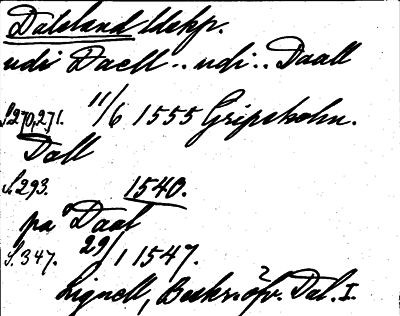 Dalsland ldskp.
udi Daell .. udi .. Daall
S. 270, 271. 11/6 1555 Gripsholm.
Dall
S. 293. 1540.
på Daal
S. 347. 29/1 1547.
Lignell, Beskrifv. Dal. I.